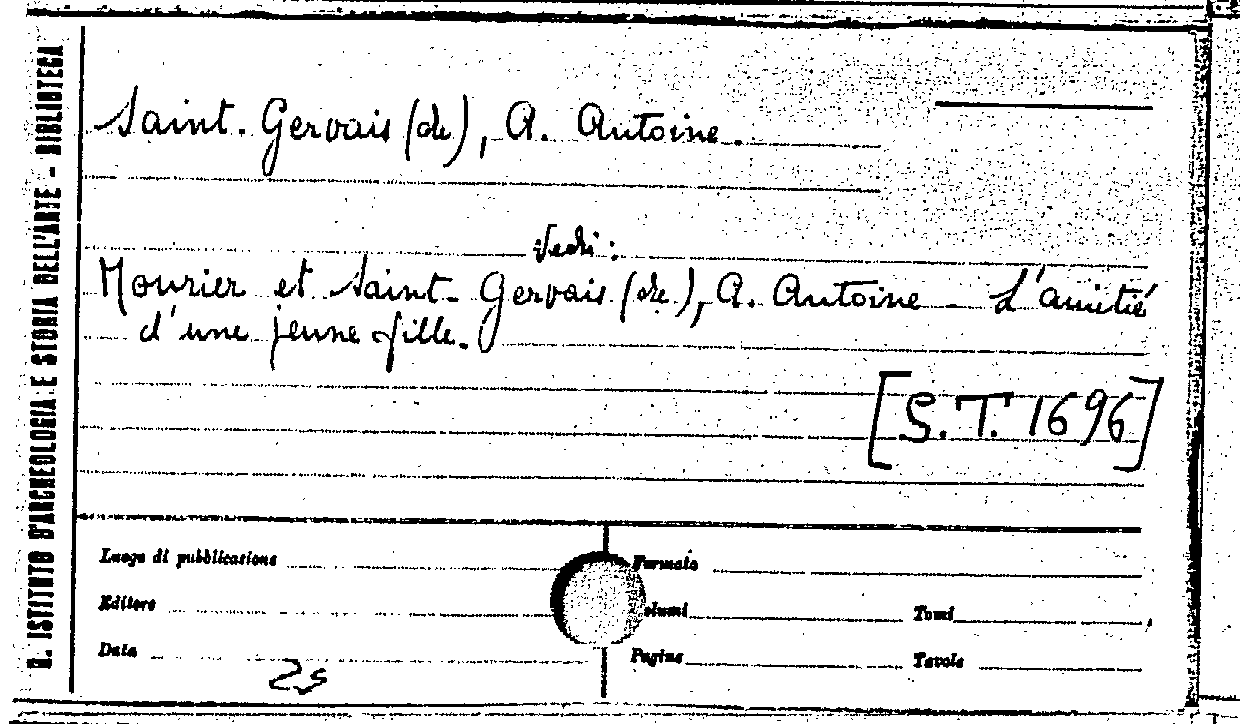 R. ISTITUTO D'ARCHEOLOGIA E STORIA DELL'ARTE - BIBLIOTECA
Saint-Gervais (de), A. Antoine.
Vedi:
Mourier et Saint-Gervais (de), A. Antoine - L'amitié
d'une jeune fille.
[S.T. 1696]
Luogo di pubblicazione
Formato
Editore
olumi
Tomi
Data
Pagine
Tavole